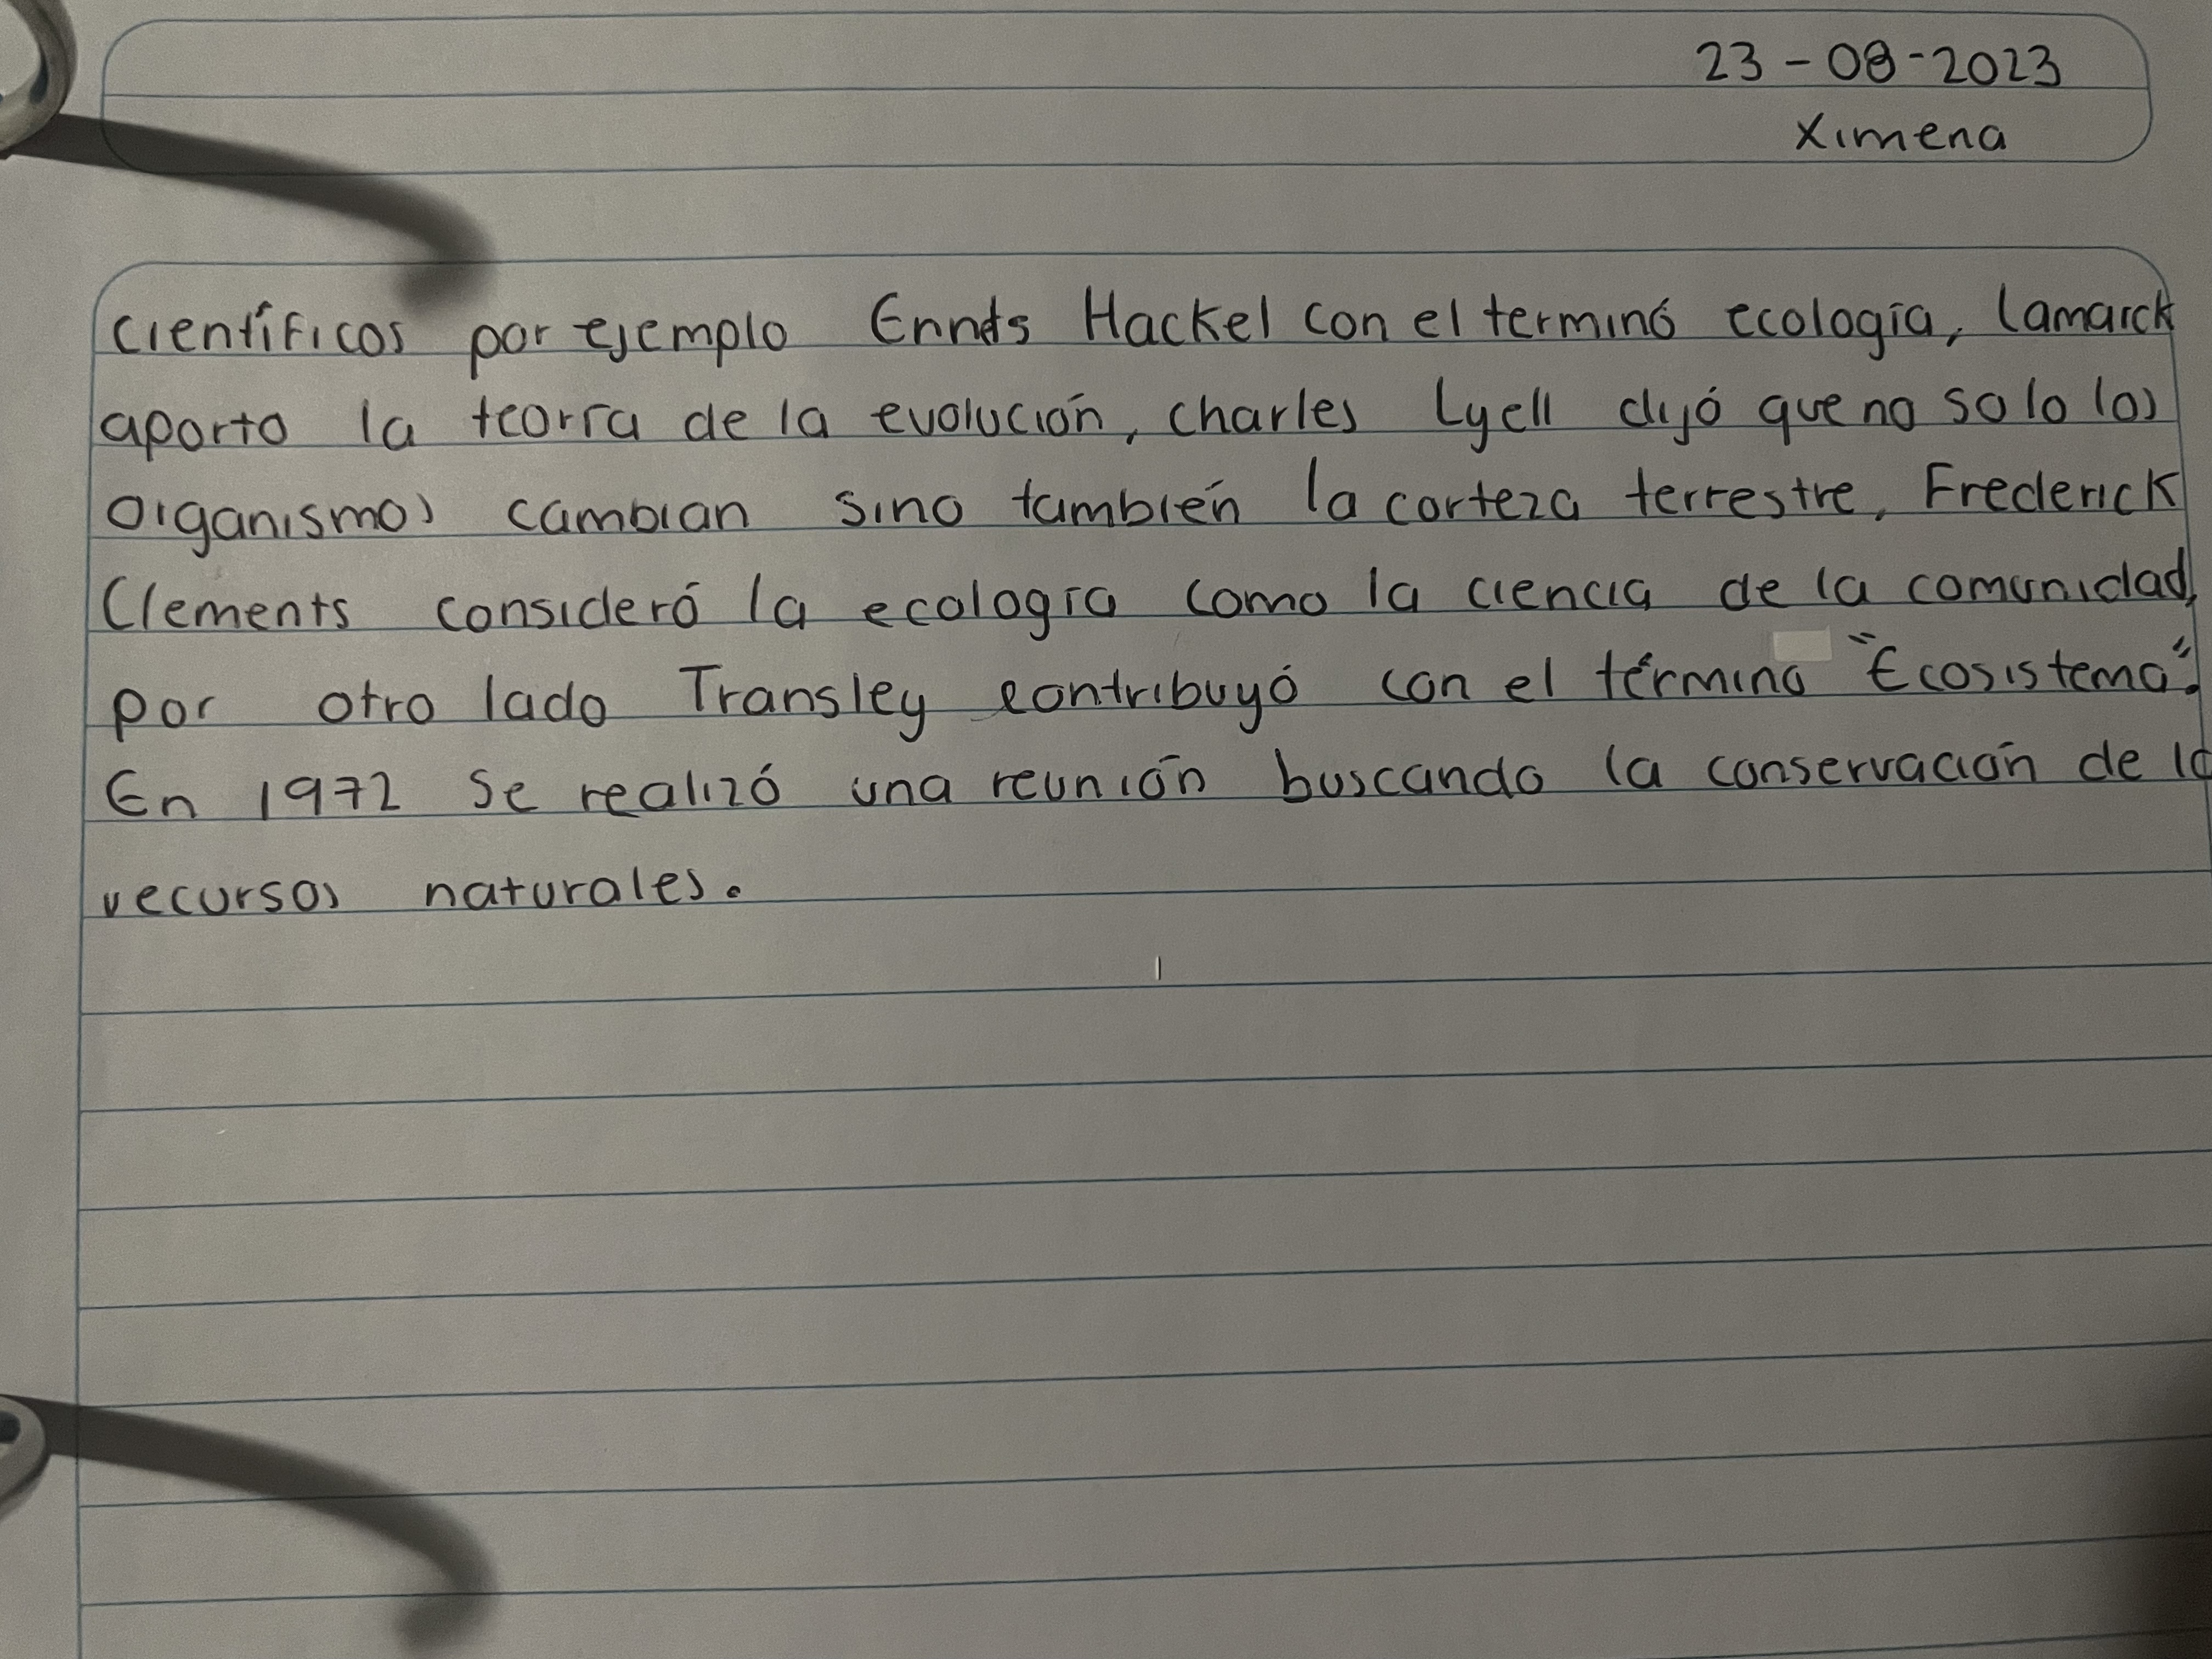 23 - 08 - 2023
Ximena
científicos por ejemplo Hackel con el terminó ecología, Lamarck
aporto la teoría de la evolución, charles Lyell dijó que no solo los
organismos cambian sino también la corteza terrestre, Frederick
Clements consideró la ecología como la ciencia de la comunidad,
por otro lado Transley contribuyó con el término "Ecosistema".
En 1972 se realizó una reunión buscando la conservación de
recursos naturales.